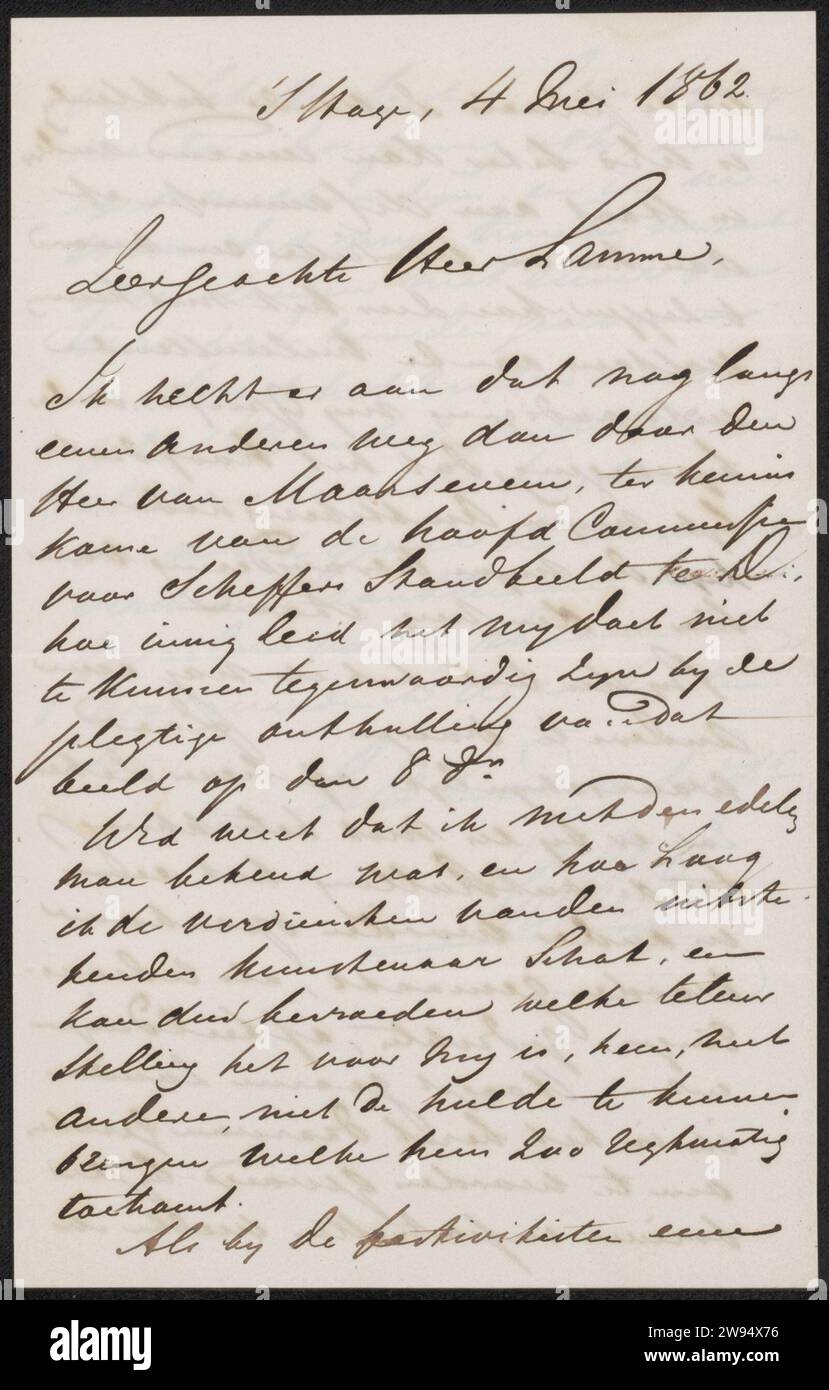 'S Hage, 4 Mei 1862.
Zeergeachte Heer Lamme,
Ik hecht er aan dat nog langs
eenen anderen weg dan door den
Heer van Maarseveen, ter kennis
kome van de hoofd Commissie
voor Scheffers Standbeeld te D.
hoe innig leed het my doet niet
te kunnen tegenwoordig zyn by de
plegtige onthulling van dat
beeld op den 8 dr.
UEd weet dat ik met den edelen
man bekend was, en hoe hoog
ik de verdiensten van den uitste-
kenden kunstenaar Schat, en
kan dus bevroeden welke teleur
stelling het voor my is, hem, met
andere, niet de hulde te kunnen
brengen welke hem zoo regtmatig
toekomt.
Als by de festiviteiten eene
alamy
alamy
Image ID: 2W94X76
www.alamy.com